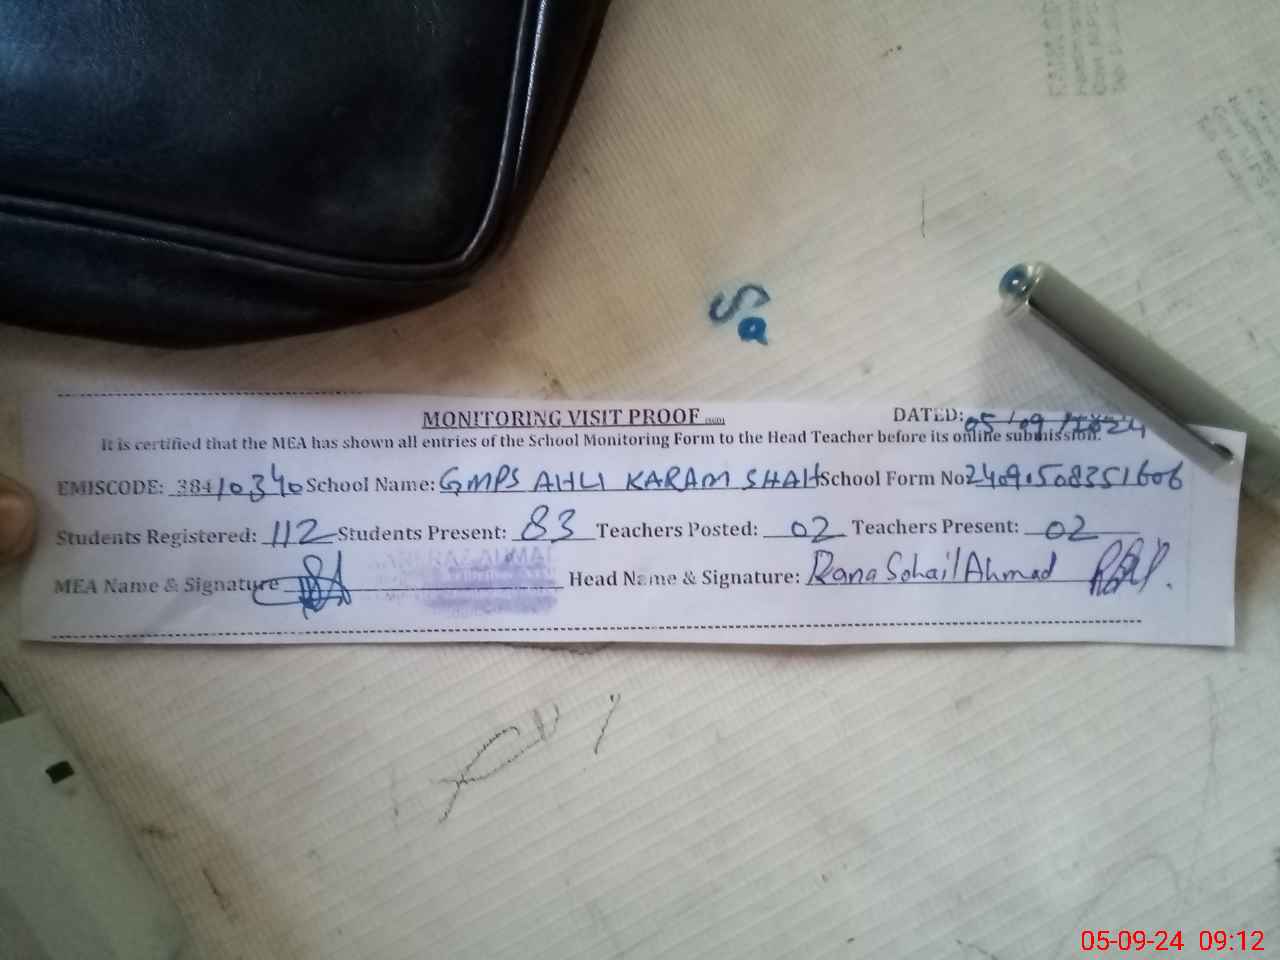 Sa
MONITORING VISIT PROOF
DATED: 05/09/2024
It is certified that the MEA has shown all entries of the School Monitoring Form to the Head Teacher before its online submission.
EMISCODE: 38410340 School Name: GMPS AHLI KARAM SHAH School Form No 2409.508351606
Students Registered: 112 Students Present: 83 Teachers Posted: 02 Teachers Present: 02
MEA Name & Signature Head Name & Signature: Rana Sohail Ahmad
05-09-24 09:12